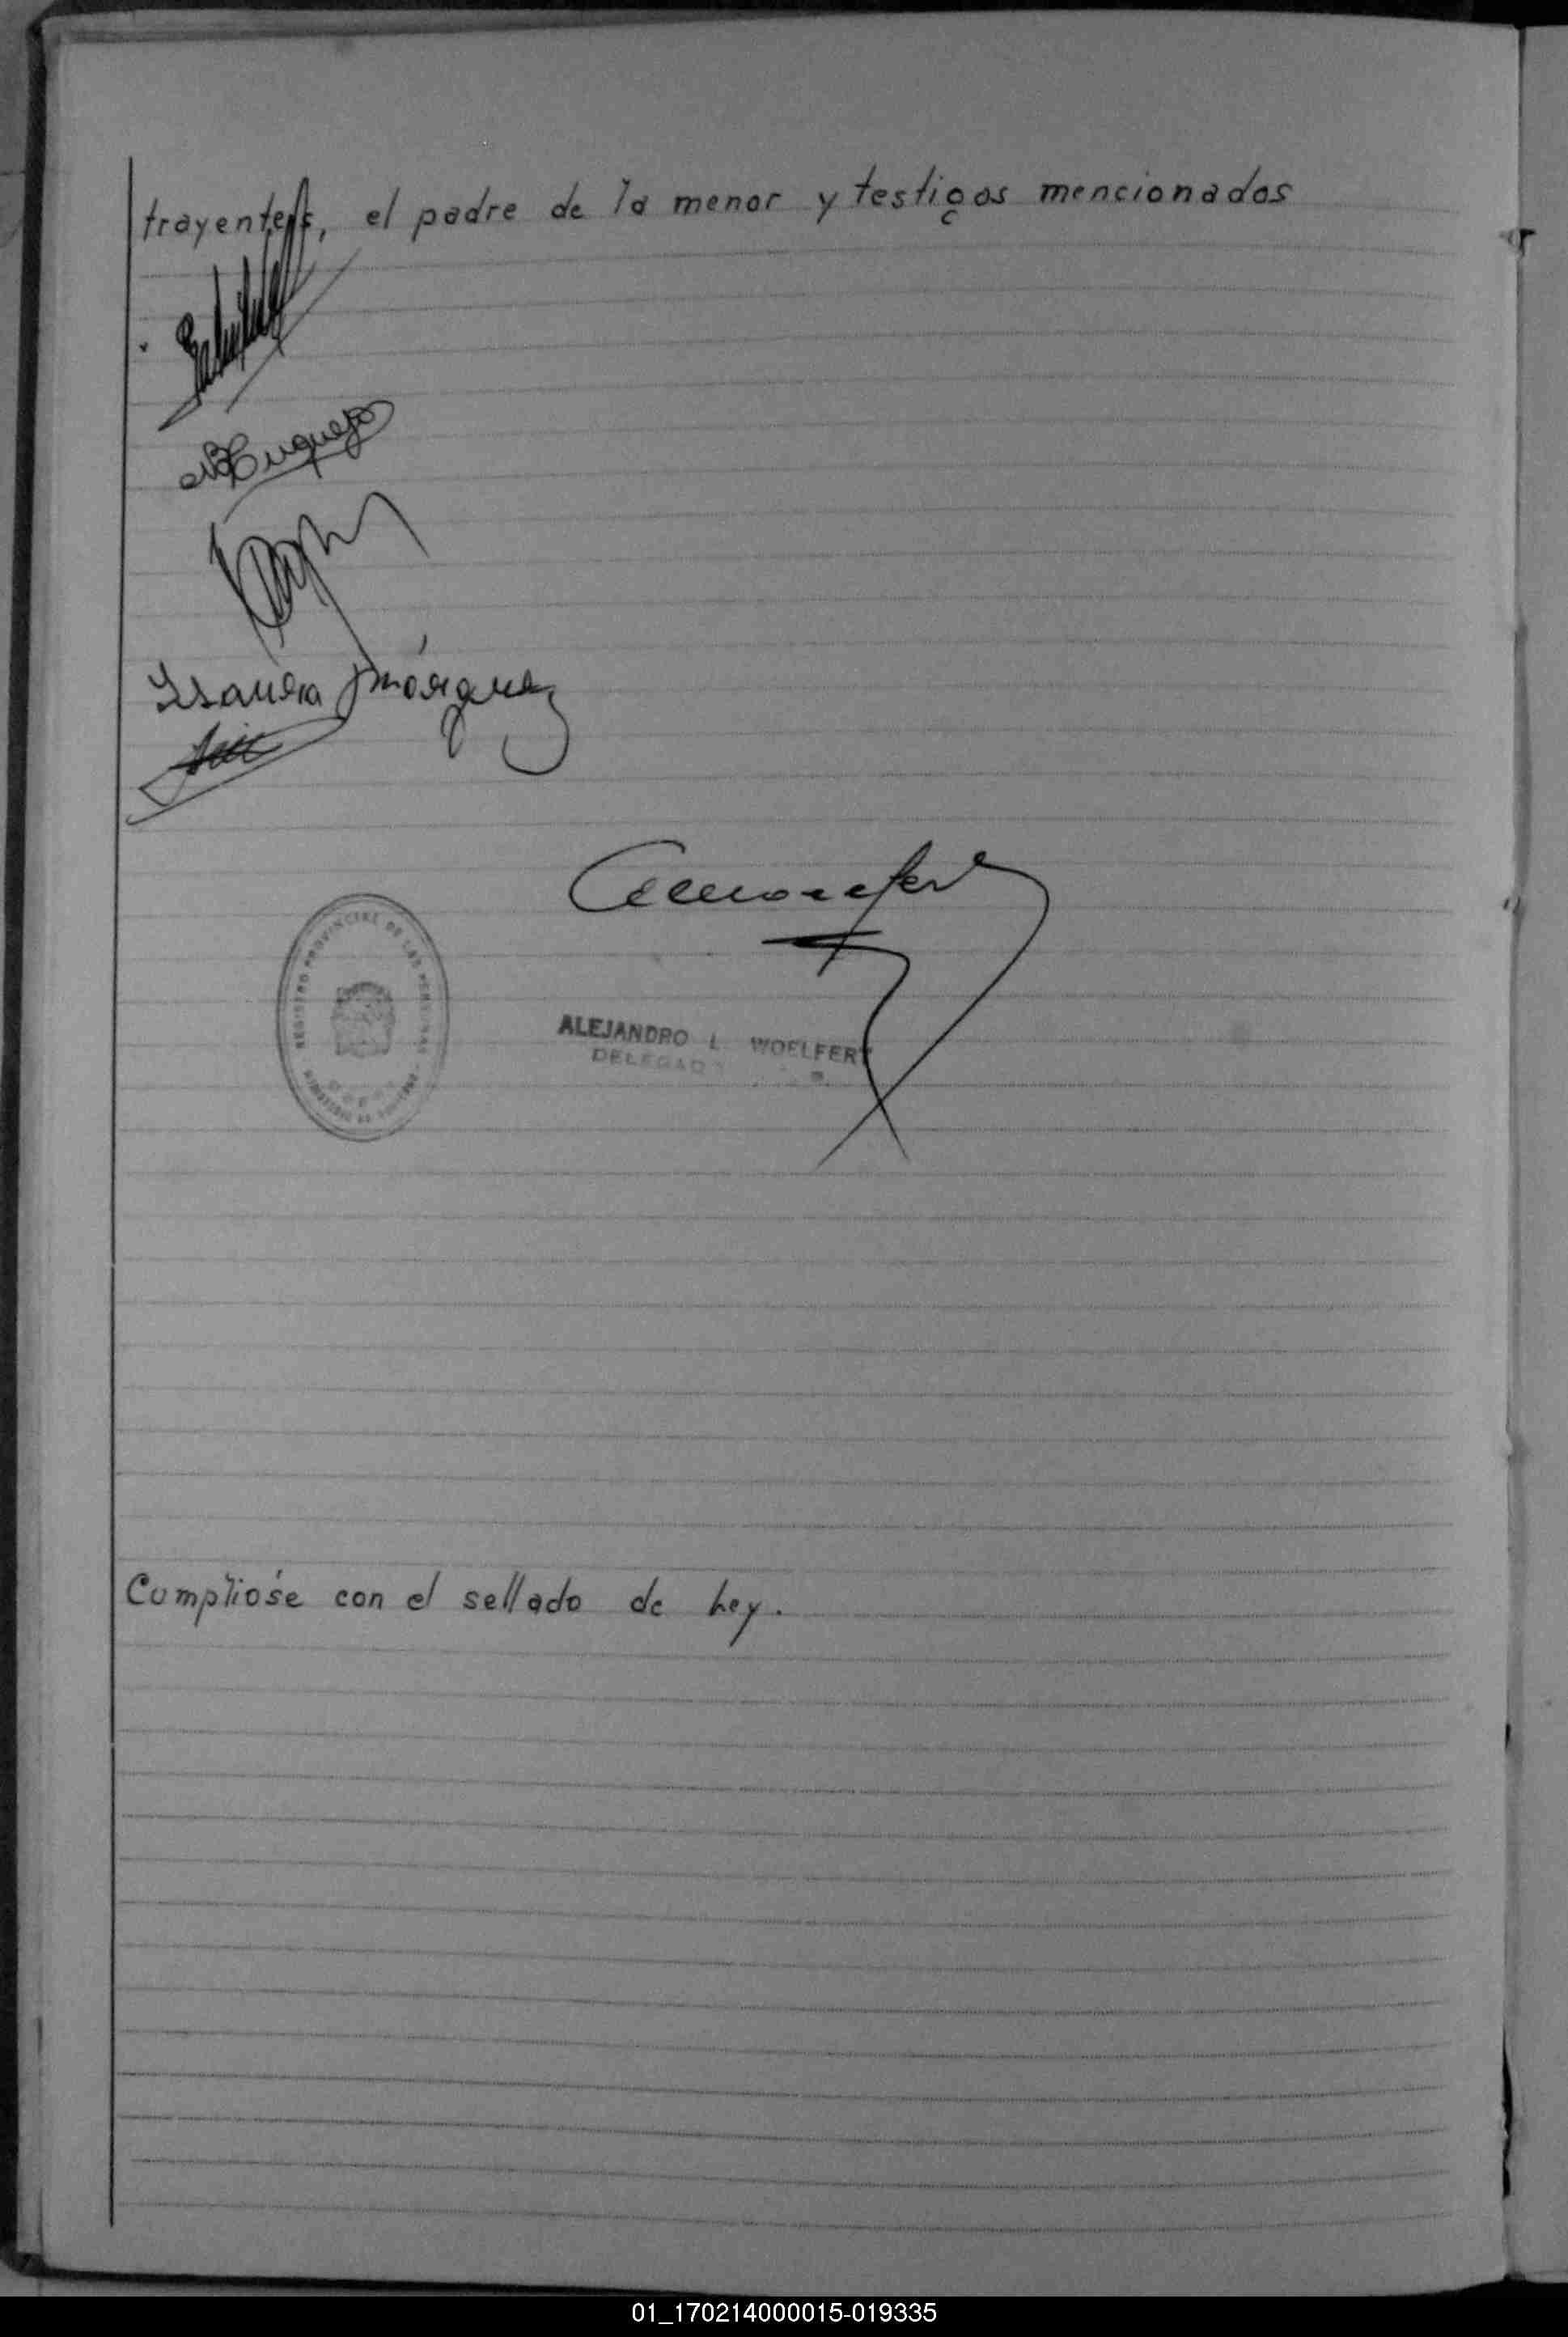 trayentes, el padre de la menor y testigos mencionados
Isaura Márquez
REGISTRO PROVINCIAL DE LAS PERSONAS
ALEJANDRO L. WOELFERT
DELEGADO
Cumplióse con el sellado de Ley.
01_170214000015-019335